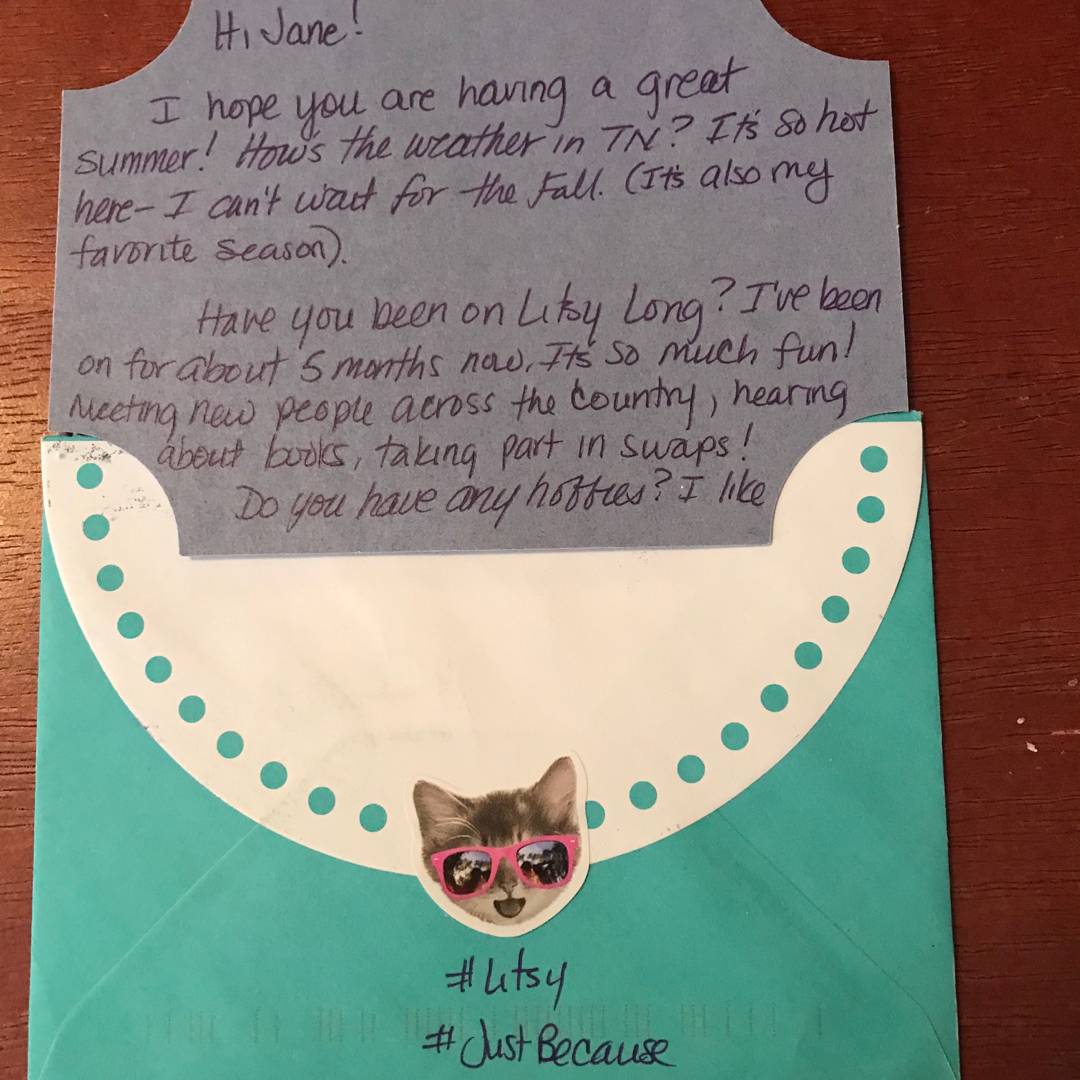 Hi Jane!
I hope you are having a great
summer! How's the weather in TN? It's so hot
here- I can't wait for the Fall. (It's also my
favorite season).
Have you been on Litsy Long? I've been
on for about 5 months now. It's so much fun!
Meeting new people across the country, hearing
about books, taking part in swaps!
Do you have any hobbies? I like
#Litsy
#JustBecause